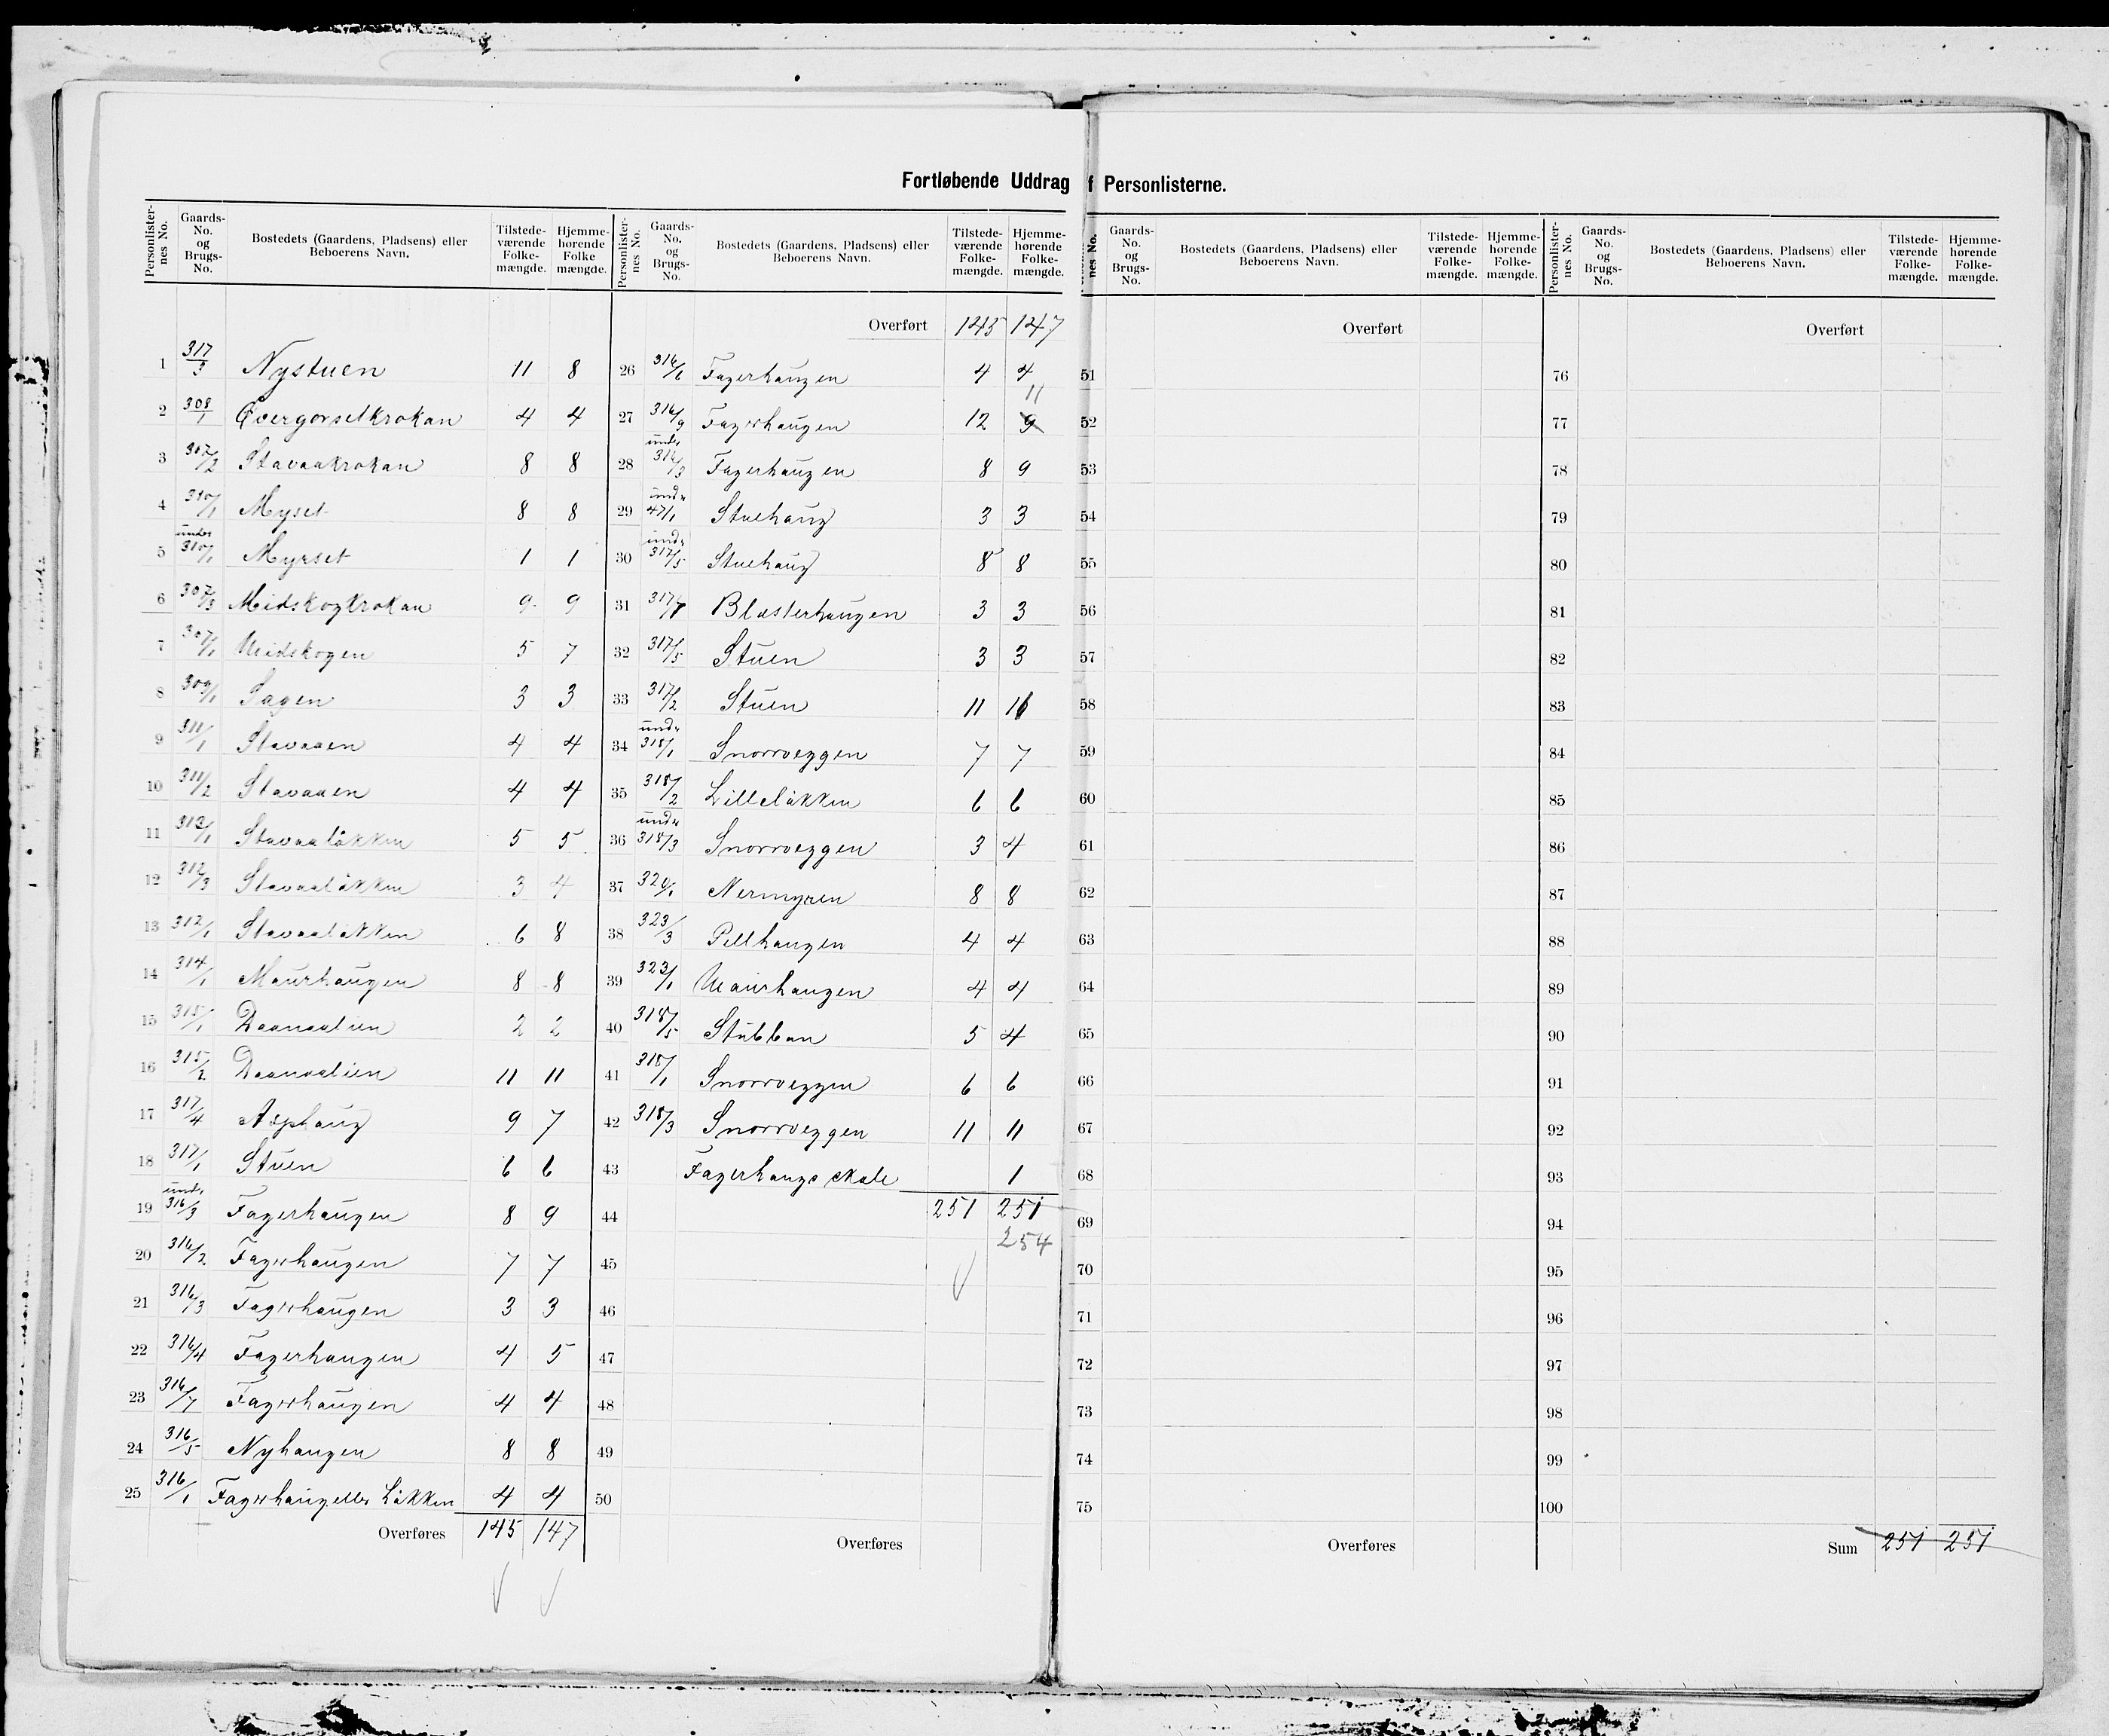 Fortløbende Uddrag f Personlisterne.
Personlister-nes No. Gaards-No. og Brugs-No. Bostedets (Gaardens, Pladsens) eller Beboerens Navn. Tilstede-værende Folke-mængde. Hjemme-hørende Folke mængde.
1 317/3 Nystuen 11 8
2 308/1 Øvergorsetkrokan 4 4
3 307/2 Stavaakrokan 8 8
4 310/1 Myset 8 8
5 under 310/1 Myrset 1 1
6 307/3 Midskogkrokan 9 9
7 307/1 Midskogen 5 7
8 309/1 Sagen 3 3
9 311/1 Stavaaen 4 4
10 311/2 Stavaaen 4 4
11 313/1 Stavaaløkken 5 5
12 312/3 Stavaaløkken 3 4
13 312/1 Stavaaløkken 6 8
14 314/1 Maurhaugen 8 8
15 315/1 Daanaalien 2 2
16 315/2 Daanaalien 11 11
17 317/4 Asphaug 9 7
18 317/1 Stuen 6 6
19 under 316/3 Fagerhaugen 8 9
20 316/2 Fagerhaugen 7 7
21 316/3 Fagerhaugen 3 3
22 316/4 Fagerhaugen 4 5
23 316/7 Fagerhaugen 4 4
24 316/5 Nyhaugen 8 8
25 316/1 Fagerhaug eller Løkken 4 4
Overføres 145 147
Personlister-nes No. Gaards-No. og Brugs-No. Bostedets (Gaardens, Pladsens) eller Beboerens Navn. Tilstede-værende Folke-mængde. Hjemme-hørende Folke-mængde.
Overført 145 147
26 316/6 Fagerhaugen 4 4
27 316/9 Fagerhaugen 12 9 11
28 under 316/3 Fagerhaugen 8 9
29 under 47/1 Stuehaug 3 3
30 under 317/5 Stuehaug 8 8
31 317/7 Blæsterhaugen 3 3
32 317/5 Stuen 3 3
33 317/2 Stuen 11 11
34 under 318/1 Snorroeggen 7 7
35 318/2 Lilleløkken 6 6
36 under 318/3 Snorroeggen 3 4
37 320/1 Nermyren 8 8
38 323/3 Pellhaugen 4 4
39 323/1 Maurhaugen 4 4
40 318/5 Stubban 5 4
41 318/1 Snorroeggen 6 6
42 318/3 Snorroeggen 11 11
43 Fagerhaugs skole 1
44 251 251
254
45
46
47
48
49
50
Overføres
nes No. Gaards-No. og Brugs-No. Bostedets (Gaardens, Pladsens) eller Beboerens Navn. Tilstede-værende Folke-mængde. Hjemme-hørende Folke-mængde.
Overført
51
52
53
54
55
56
57
58
59
60
61
62
63
64
65
66
67
68
69
70
71
72
73
74
75
Overføres
Personlister-nes No. Gaards-No. og Brugs-No. Bostedets (Gaardens, Pladsens) eller Beboerens Navn. Tilstede-værende Folke-mængde. Hjemme-hørende Folke-mængde.
Overført
76
77
78
79
80
81
82
83
84
85
86
87
88
89
90
91
92
93
94
95
96
97
98
99
100
Sum 251 251